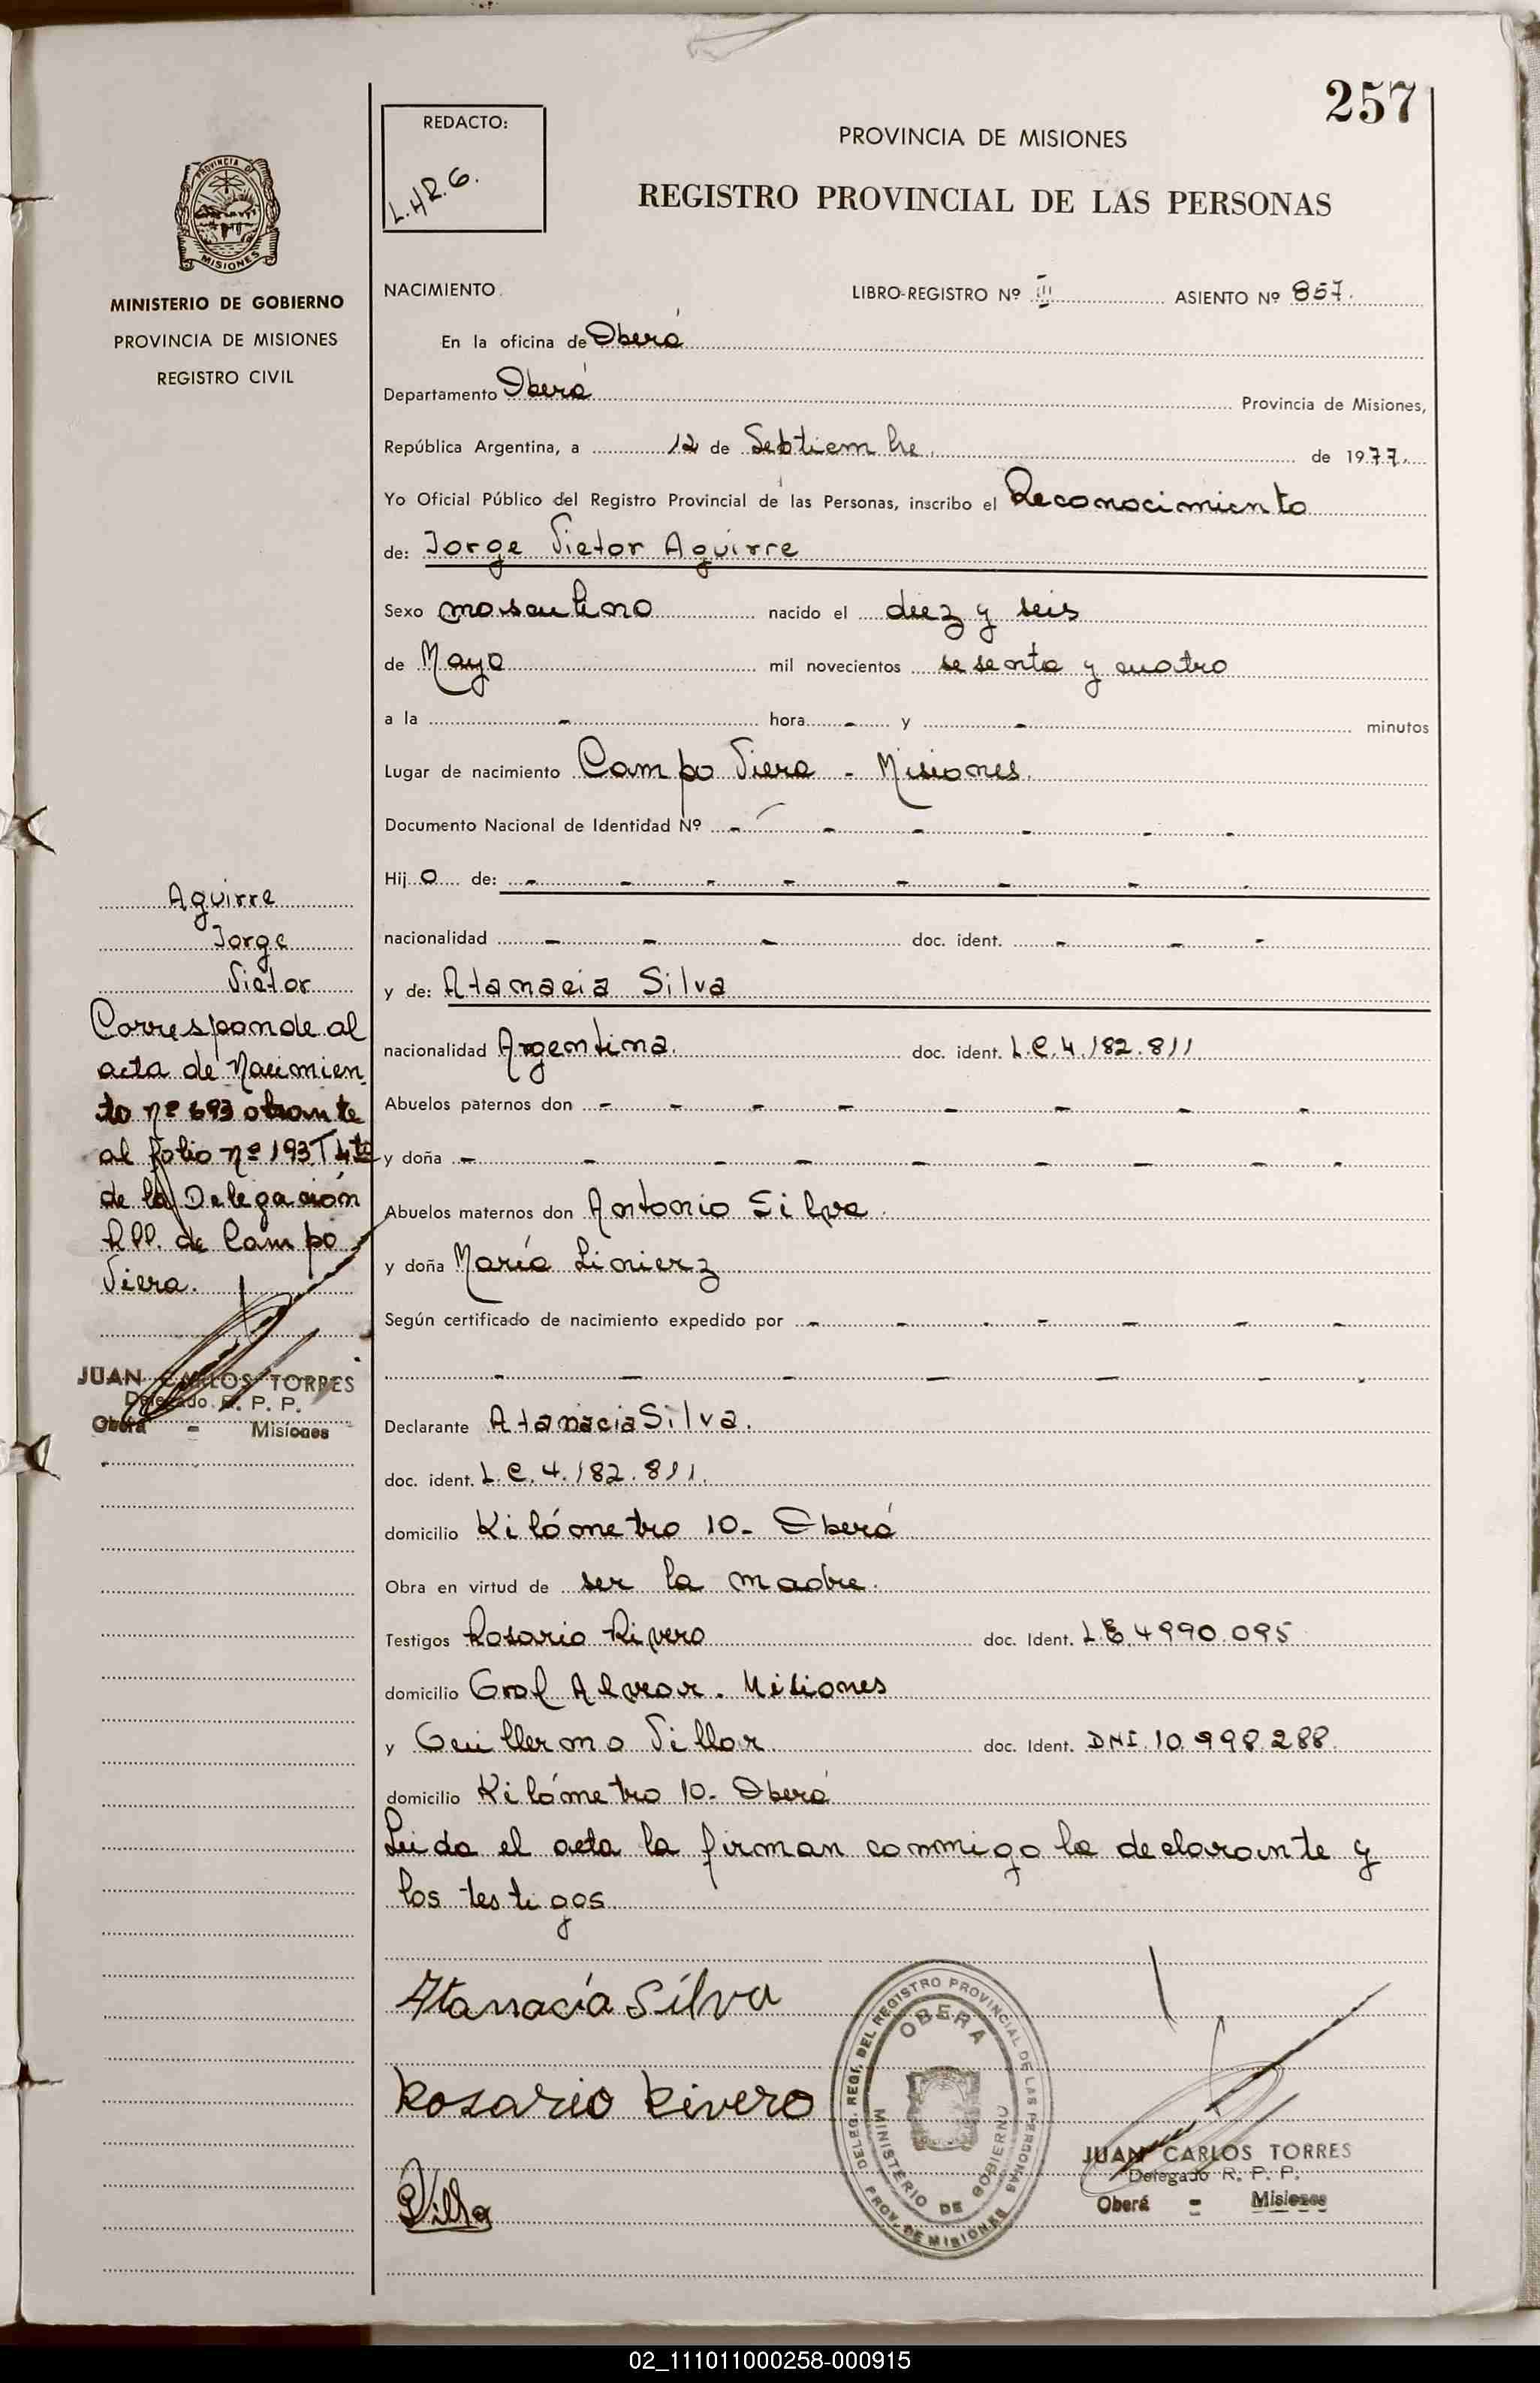 257
REDACTO:
L.H.R.G.
PROVINCIA DE MISIONES
REGISTRO PROVINCIAL DE LAS PERSONAS
PROVINCIA DE
MISIONES
MINISTERIO DE GOBIERNO
PROVINCIA DE MISIONES
REGISTRO CIVIL
NACIMIENTO. LIBRO-REGISTRO Nº III ASIENTO Nº 857.
En la oficina de Oberá
Departamento Oberá Provincia de Misiones,
República Argentina, a 12 de Septiembre. de 1977.
Yo Oficial Público del Registro Provincial de las Personas, inscribo el Reconocimiento
de: Jorge Victor Aguirre
Sexo masculino nacido el diez y seis
de Mayo mil novecientos sesenta y cuatro
a la - hora - y - minutos
Lugar de nacimiento Campo Viera - Misiones.
Documento Nacional de Identidad Nº - - - - - -
Hijo de: - - - - - - -
nacionalidad - - - doc. ident. - - -
y de: Atanacia Silva
nacionalidad Argentina. doc. ident. L.C.4.182.811
Abuelos paternos don - - - - - - - -
y doña - - - - - - - - -
Abuelos maternos don Antonio Silva.
y doña María Linierz
Según certificado de nacimiento expedido por - - - - - - -
- - - - - - -
Declarante Atanacia Silva.
doc. ident. L.C.4.182.811.
domicilio Kilómetro 10- Oberá
Obra en virtud de ser la madre.
Testigos Rosario Rivero doc. Ident. L.E.4990.095
domicilio Gral Alvear. Misiones
y Guillermo Villar doc. Ident. DNI.10.998.288.
domicilio Kilómetro 10- Oberá
Leida el acta la firman conmigo la declarante y
los testigos
Atanacia Silva
Rosario Rivero
Aguirre
Jorge
Victor
Corresponde al
acta de Nacimien
to nº 693 obrante
al folio nº 193 T 4to
de la Delegación
R.P.P. de Campo
Viera.
JUAN CARLOS TORRES
Delegado R. P. P.
Oberá - Misiones
DELEG. REGI. DEL REGISTRO PROVINCIAL DE LAS PERSONAS
OBERA
MINISTERIO DE GOBIERNO
PROV. DE MISIONES
JUAN CARLOS TORRES
Delegado R. P. P.
Oberá - Misiones
02_111011000258-000915